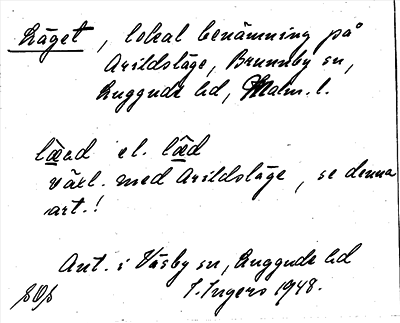 Läget, lokal benämning på
Arildsläge, Brunnby sn,
Luggude hd, Malm. l.
läəd el. läd
växl. med Arildsläge, se denna
art.!
Ant. i Väsby sn, Luggude hd
I. Ingers 1948.